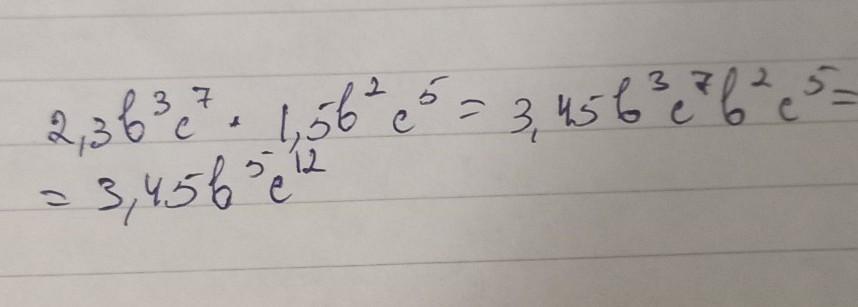 2,3b³c⁷ · 1,5b²c⁵ = 3,45b³c⁷b²c⁵ =
= 3,45b⁵c¹²